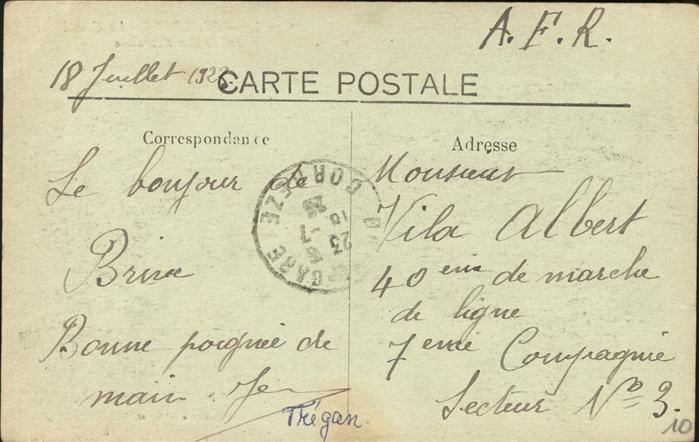 A. F. R.
18 Juillet 1923
CARTE POSTALE
Correspondance
Le bonjour de
Brive
Bonne poignée de
main
Trégan
Adresse
Monsieur
Vila Albert
40 eme de marche
de ligne
7 eme Compagnie
Secteur No 3.
10
GARE
CORREZE
18
23